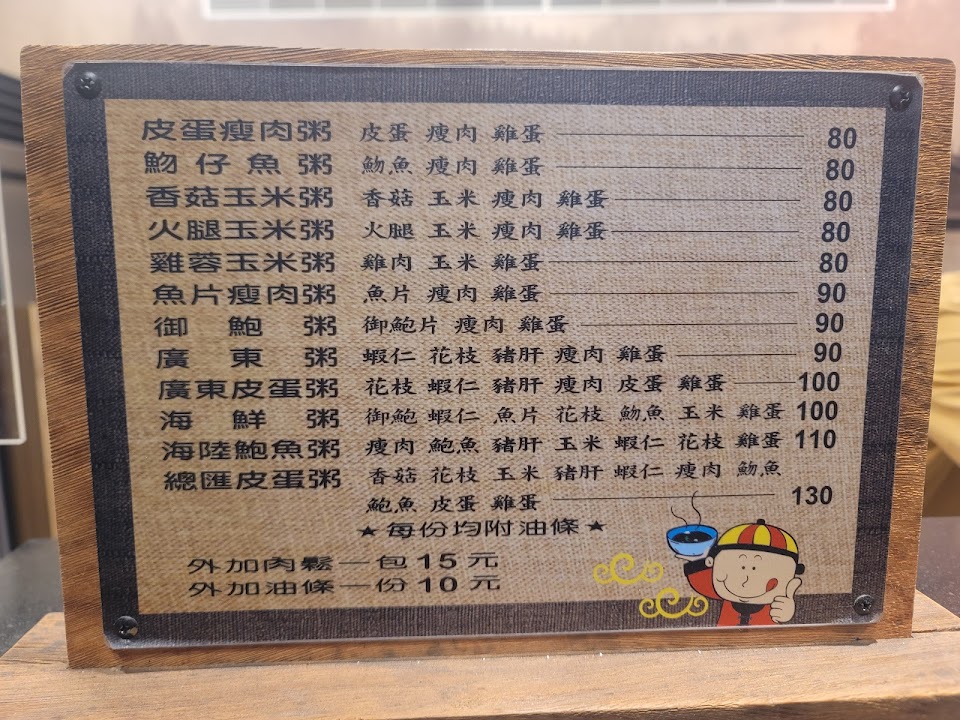 皮蛋瘦肉粥 皮蛋 瘦肉 雞蛋 80
魩仔魚粥 魩魚 瘦肉 雞蛋 80
香菇玉米粥 香菇 玉米 瘦肉 雞蛋 80
火腿玉米粥 火腿 玉米 瘦肉 雞蛋 80
雞蓉玉米粥 雞肉 玉米 雞蛋 80
魚片瘦肉粥 魚片 瘦肉 雞蛋 90
御鮑粥 御鮑片 瘦肉 雞蛋 90
廣東粥 蝦仁 花枝 豬肝 瘦肉 雞蛋 90
廣東皮蛋粥 花枝 蝦仁 豬肝 瘦肉 皮蛋 雞蛋 100
海鮮粥 御鮑 蝦仁 魚片 花枝 魩魚 玉米 雞蛋 100
海陸鮑魚粥 瘦肉 鮑魚 豬肝 玉米 蝦仁 花枝 雞蛋 110
總匯皮蛋粥 香菇 花枝 玉米 豬肝 蝦仁 瘦肉 魩魚
鮑魚 皮蛋 雞蛋 130
★每份均附油條★
外加肉鬆一包15元
外加油條一份10元